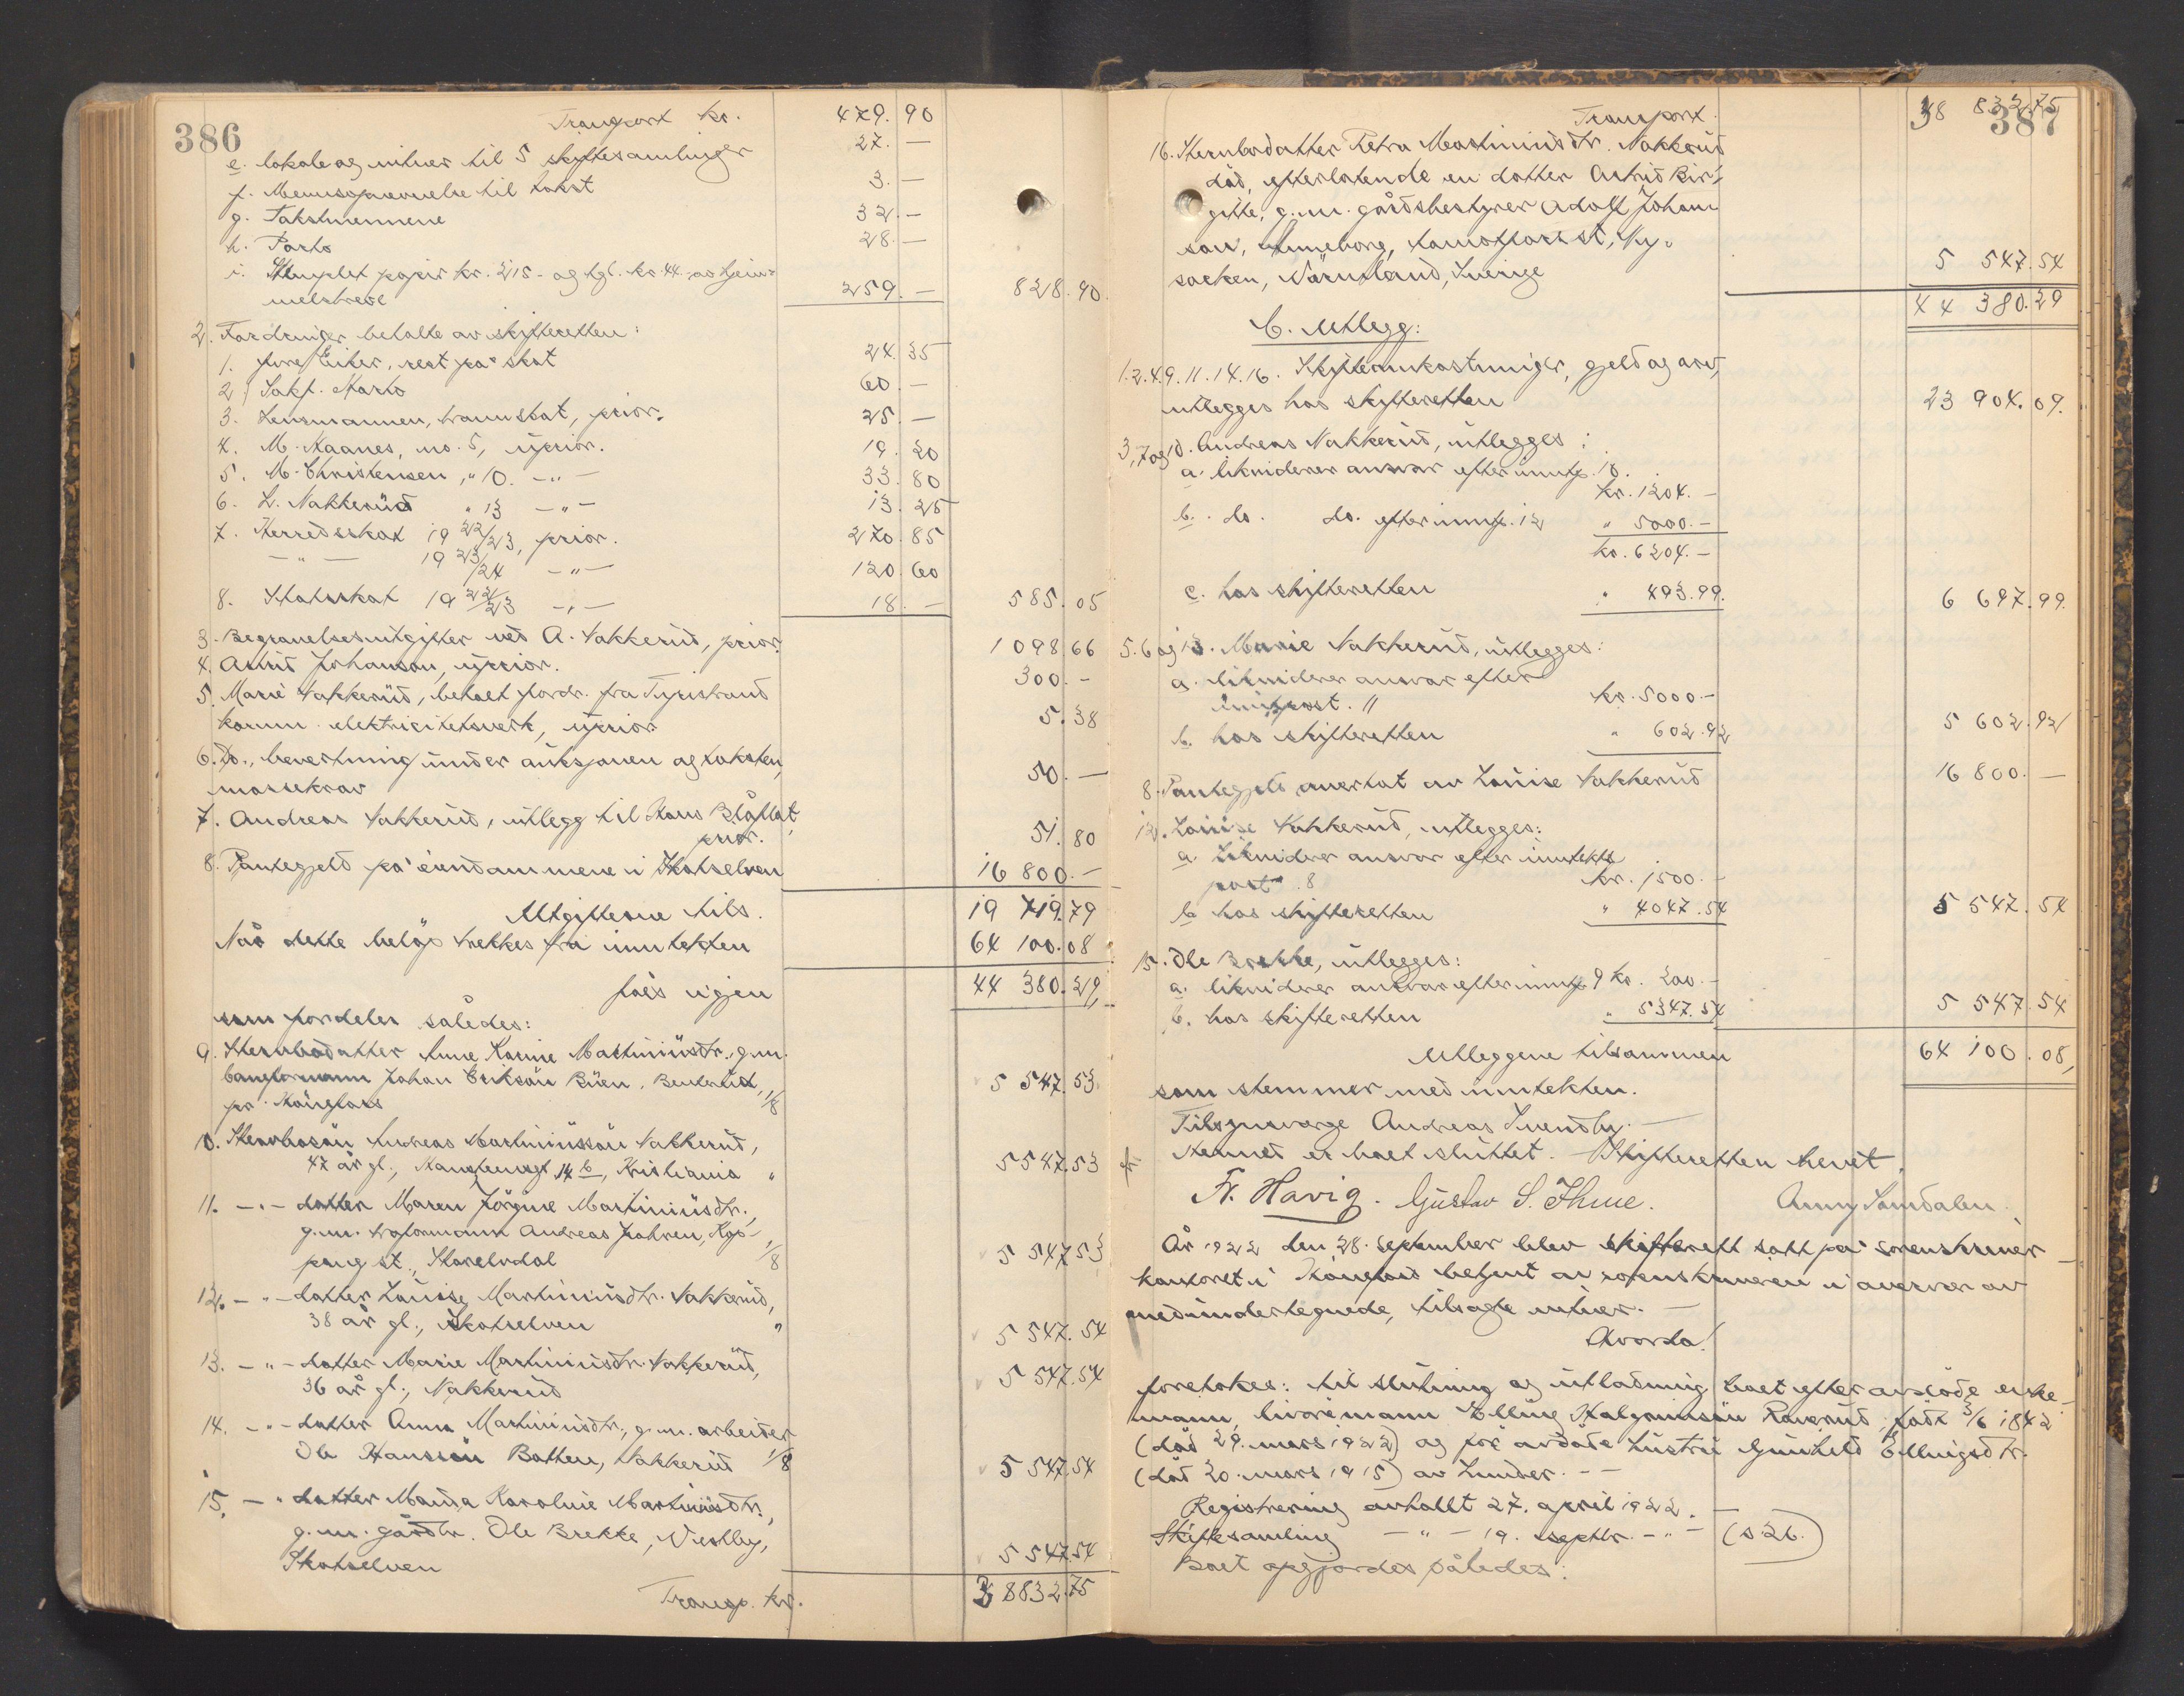 386
Transport kr. 479.90
e. lokale og vitner til 5 skiftesamlinger 27.—
f. Mennsopnevnelse til takst 3.—
g. Takstmennene 32.—
h. Porto 28.—
i. Stemplet papir kr. 215.- og tgl. kr. 44.- av hjem-
melsbreve 259.— 828.90.
2. Fordringer betalte av skifteretten:
1. Øvre Eiker, rest på skat 24.35
2. Sakf. 60.—
3. Lensmannen, prior. 25.—
4. M. Kaanes, no. 5, uprior. 19.20
5. M. Christensen, " 10. —"— 33.80
6. L. Nakkerud " 13 —"— 13.25
7. Herredsskat 1922/23, prior. 270.85
—"— 1923/24 —"— 120.60
8. Statsskat 1922/23 —"— 18.— 585.05
3. Begravelsesutgifter ved A. Nakkerud, prior. 1098.66
4. Astrid Johanson, uprior. 300.—
5. Marie Nakkerud, betalt fordr. fra Tyristrand
komm. elektricitetsverk, uprior 5.38
6. Do., bevertning under auksjonen og taksten,
massekrav 50.—
7. Andreas Nakkerud, utlegg til Hans
prior. 51.80
8. Pantegjeld på eiendommene i Skotselven 16 800.—
Utgifterne tils. 19 719.79
Når dette beløp trekkes fra inntekten 64 100.08
fåes igjen 44 380.29,
som fordeles således:
9. Stervbodatter Anne Karine Martiniusdr., g.m.
Johan Erikson Buen, Benterud,
pr. Hønefoss 1/8 5 547.53.
10. Stervbosøn Andreas Martiniussøn Nakkerud,
47 år gl., 14 b, Kristiania " 5 547.53
11. —"— datter Maren Jörgine Martiniusdr.,
g.m. Andreas Jahren, Kop-
pang st., Storelvdal 1/8 5 547.53
12. —"— datter Louise Martiniusdr. Nakkerud,
38 år gl., Skotselven " 5 547.54
13. —"— datter Marie Martiniusdr. Nakkerud,
36 år gl., Nakkerud 5 547.54
14. —"— datter Anna Martiniusdr., g.m. arbeider
Ole Hanssön Batten, Nakkerud 1/8 5 547.54
15. —"— datter Karoline Martiniusdr.,
g.m. gårdbr. Ole Brekke, Vestby,
Skotselven 5 547.54
Transp. kr. 38 832.75
387
Transport. 38 832.75
16. Stervbodatter Petra Martiniusdr. Nakkerud
död, efterlatende en datter Astrid Bir-
gitte, g.m. gårdsbestyrer Adolf Johan-
son, st., Ny-
socken, Värmland, Sverige 5 547.54
44 380.29
C. Utlegg:
1.2.4.9.11.14.16. Skifteomkostninger, gjeld og arv,
utlegges hos skifteretten 23 904.09.
3, 7 og 10. Andreas Nakkerud, utlegges:
a. likviderer ansvar efter inntp. 10.
kr. 1204.—
b. do. do. efter inntp. 12 " 5000.—
kr. 6204.—
c. hos skifteretten " 493.99. 6 697.99.
5. 6 og 13. Marie Nakkerud, utlegges:
a. likviderer ansvar efter
inntpost. 11 kr. 5000.—
b. hos skifteretten " 602.92 5 602.92
8. Pantegjeld overtat av Louise Nakkerud 16 800.—
12. Louise Nakkerud, utlegges:
a. likviderer ansvar efter inntekts
post 8 kr. 1500.—
b. hos skifteretten " 4047.54 5 547.54
15. Ole Brekke, utlegges:
a. likviderer ansvar efter inntp. 9 kr. 200.—
b. hos skifteretten " 5347.54 5 547.54
Utleggene tilsammen 64 100.08,
som stemmer med inntekten.
Tilsynsverge Andreas Svendby.—
Hermed er boet sluttet. Skifteretten hevet.
Fr. Havig. Gustav S. Ihme. Anny Samdalen.
År 1922 den 28. september blev skifterett satt på sorenskriver-
kontoret i Hønefoss betjent av sorenskriveren i overvær av
medundertegnede, tilsagte vitner.—
Avorda!
foretokes: til slutning og utlodning boet efter avdöde enke-
mann, Elling Halgrimsön Raverud, född 3/6 1842
(död 29. mars 1922) og før avdøde hustru Gunhild Ellingsdtr.
(död 20. mars 1915) av Lunder.—
Registrering avholdt 27. april 1922.
Skiftesamling —"— 19. septbr. —"— (s 26.)
Boet opgjordes således: